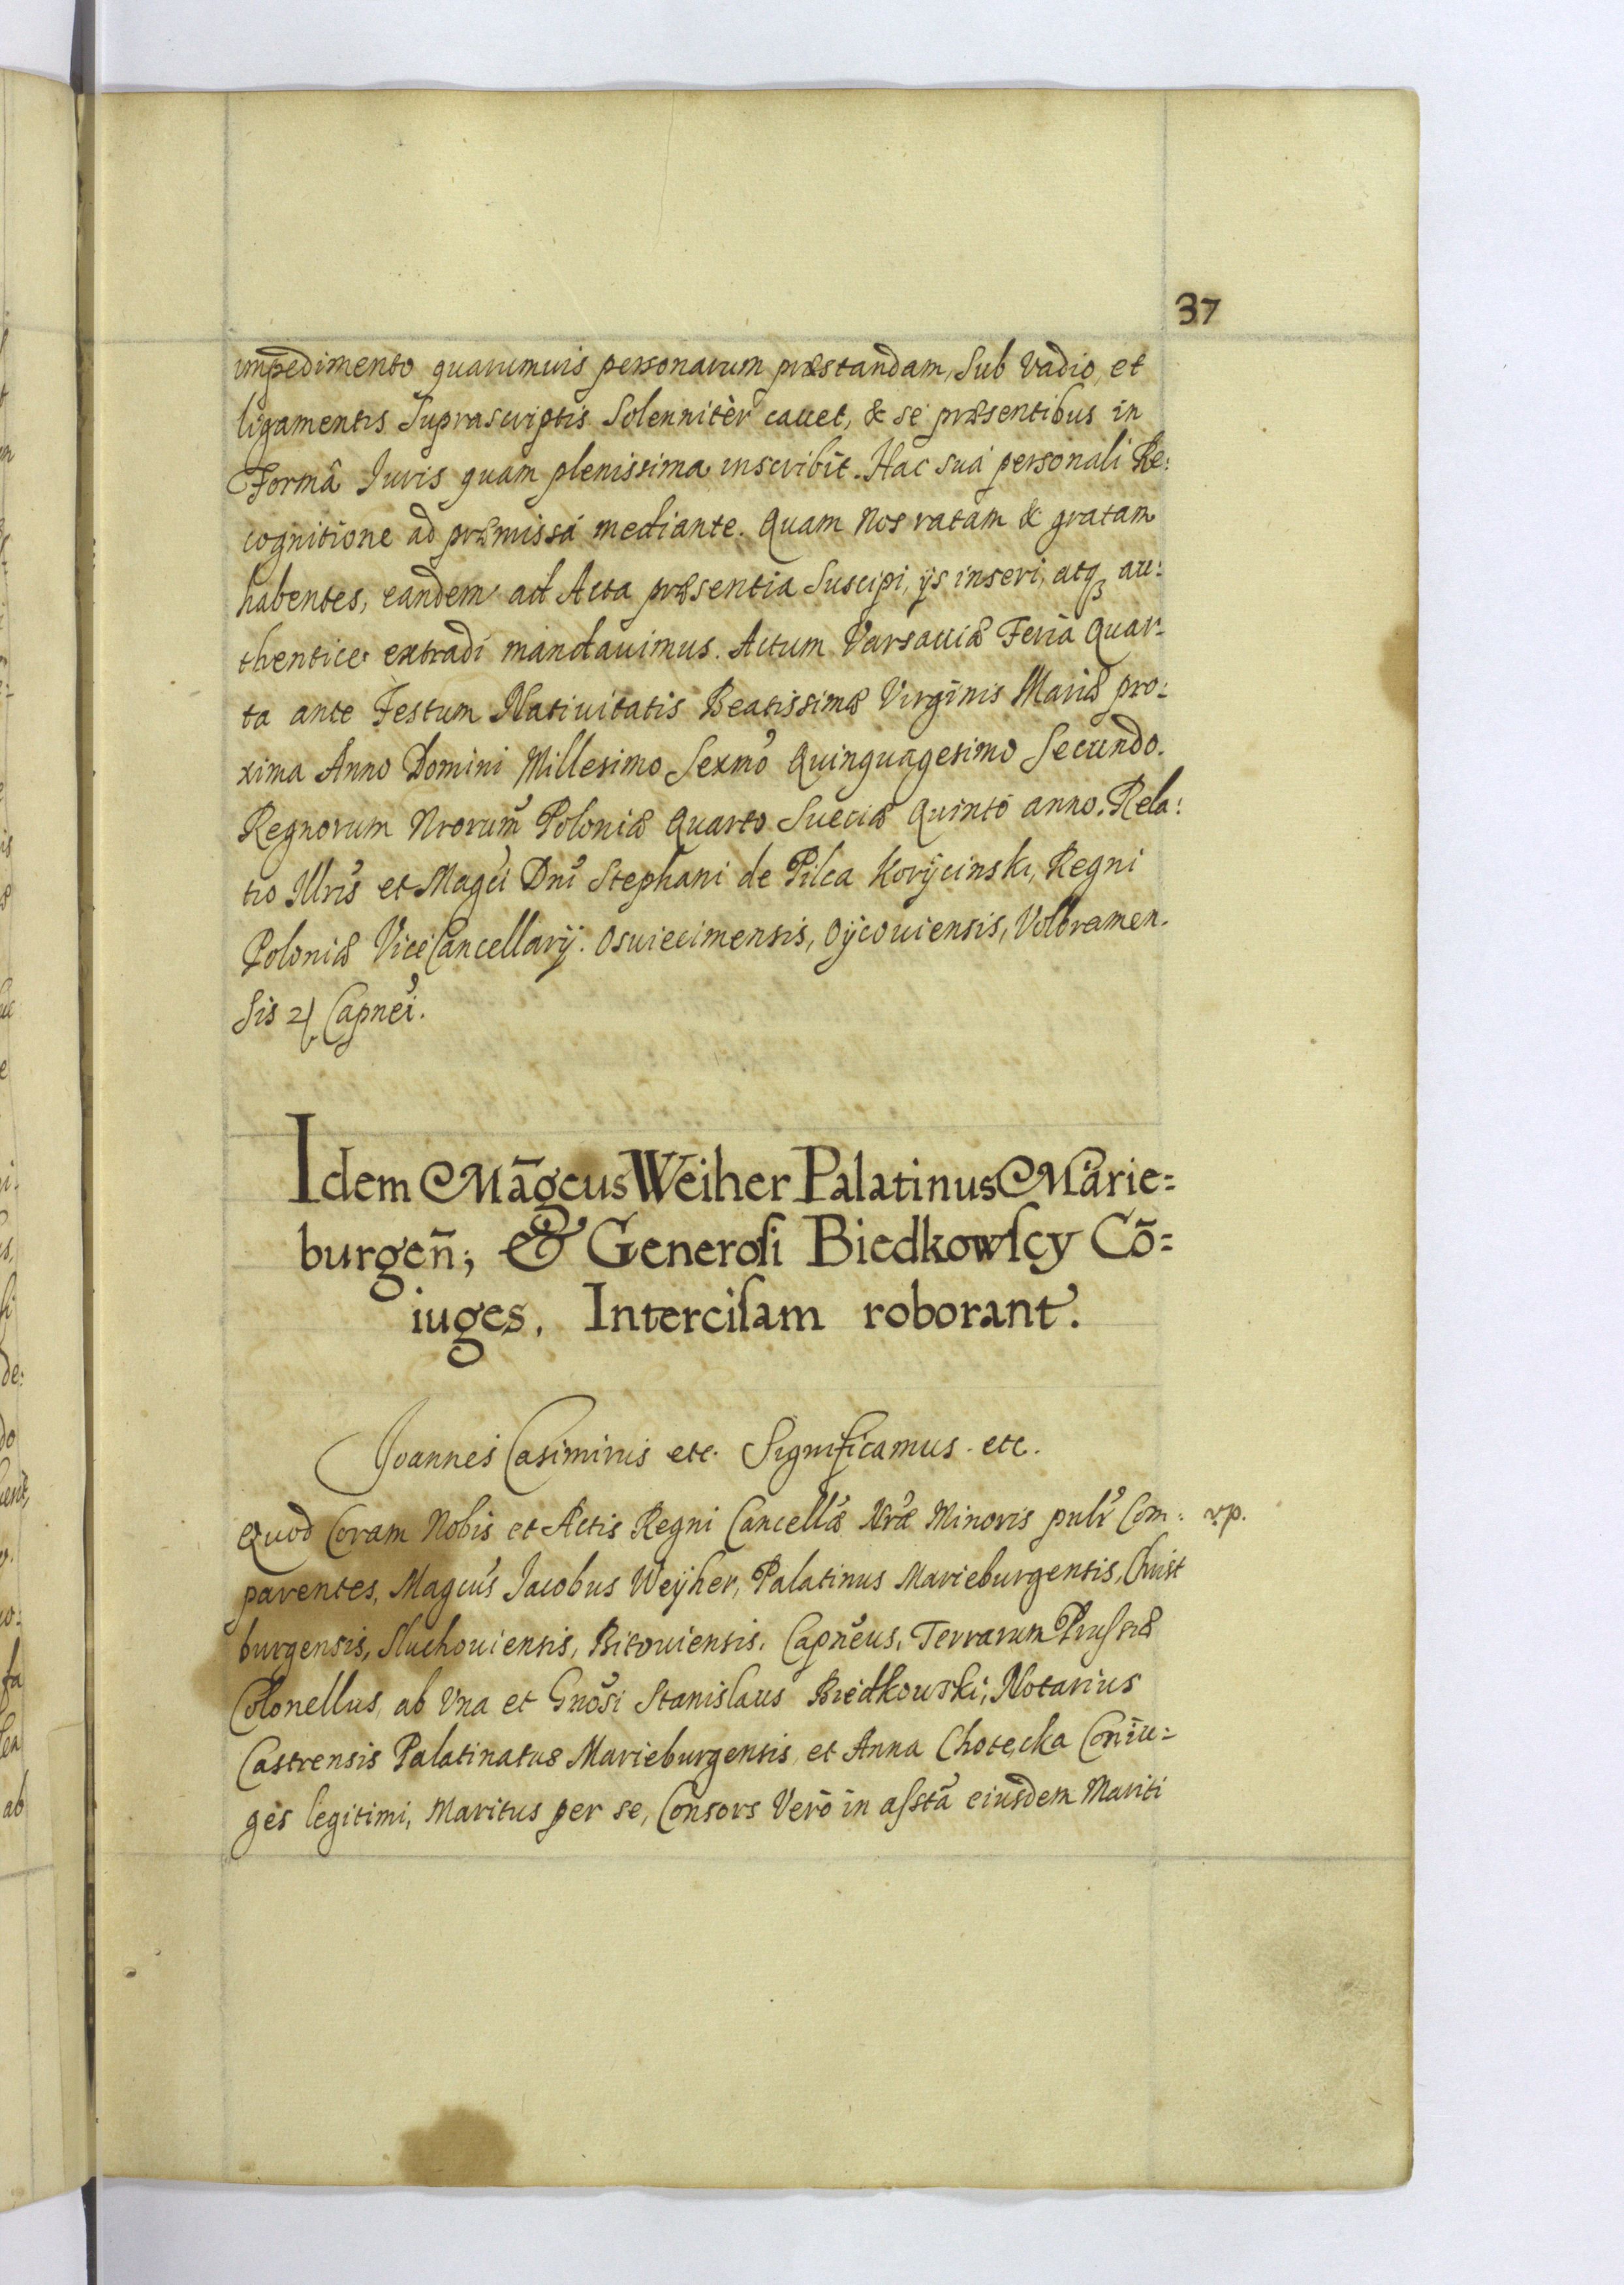 37
impedimento quarumuis personarum præstandam, Sub Vadio, et
ligamentis Suprascriptis Solenniter cauet, & se præsentibus in
Formâ Iuris quam plenissima inscribit. Hac suâ personali Re:
cognitione ad præmissa mediante. Quam Nos ratam & gratam
habentes, eandem ad Acta præsentia Suscipi, ijs inseri, atq3 au:
thentice extradi mandauimus. Actum Varsauiæ Feria Quar-
ta ante Festum Natiuitatis Beatissimæ Virginis Mariæ pro:
xima Anno Domini Millesimo Sexmo Quinquagesimo Secundo.
Regnorum Nrorum Poloniæ Quarto Sueciæ Quinto anno. Rela:
tio Illris et Magci Dni Stephani de Pilca Korijcinski, Regni
Poloniæ ViceCancellarij. Osuiecimensis, Oijcouiensis, Volbramen-
sis Capnei.
Idem Māgcus Weiher Palatinus Marie=
burgen̄; & Generosi Biedkowscy Cō=
iuges, Intercisam roborant.
Joannes Casimirus etc. Significamus. etc.
Quod Coram Nobis et Actis Regni Cancellæ Nræ Minoris pulr Com: rp.
parentes, Magcus Jacobus Weijher, Palatinus Marieburgensis, Christ
burgensis, Sluchouiensis, Bitouiensis. Capneus, Terrarum Prussiæ
Colonellus, ab Vna et Gnosi Stanislaus Biedkowski, Notarius
Castrensis Palatinatus Marieburgensis, et Anna Chotecka Coniu=
ges legitimi, Maritus per se, Consors Verò in asstā eiusdem Mariti